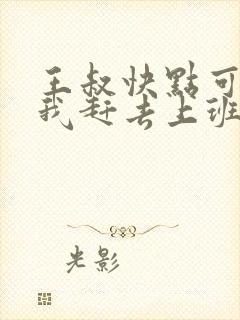 王叔快點可
我赶去上班
光影